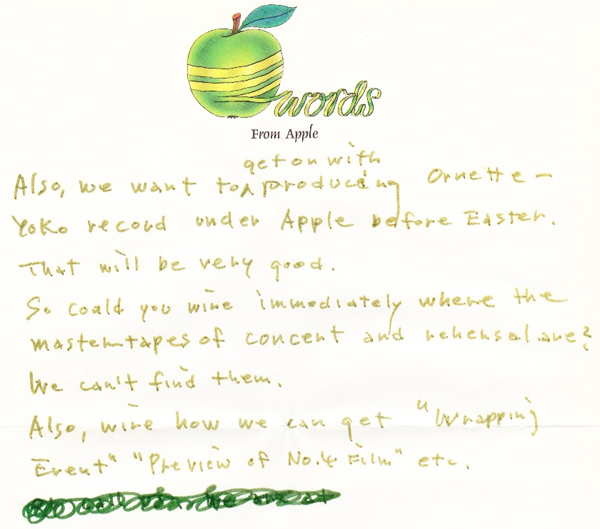 words
From Apple
get on with
Also, we want to producing Ornette -
Yoko record under Apple before Easter.
That will be very good.
So could you wire immediately where the
mastertapes of concert and rehersal are?
We can't find them.
Also, wire how we can get "Wrapping
Event" "Preview of No.4 Film" etc.